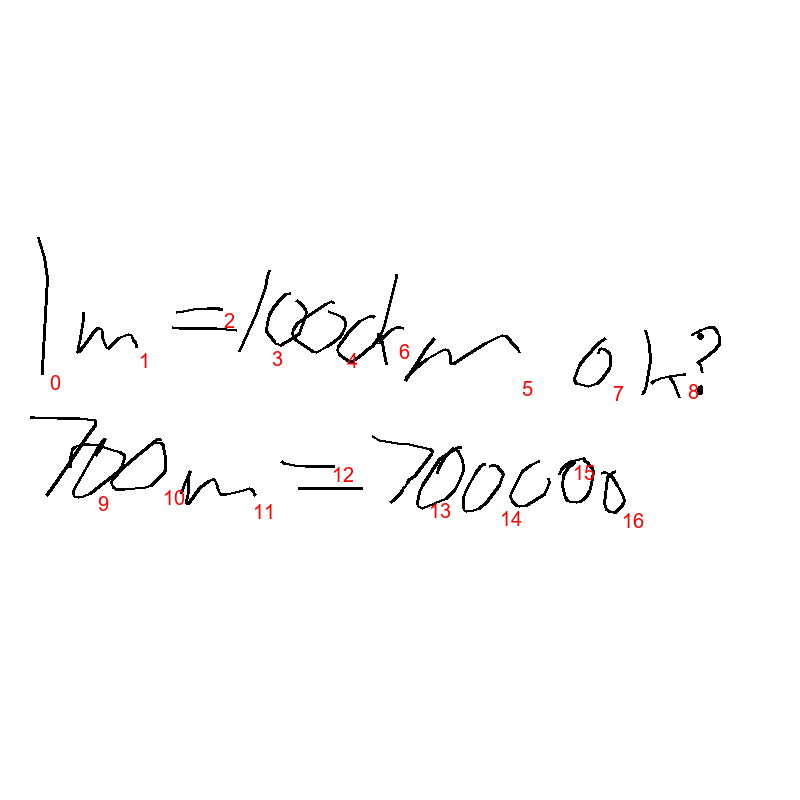 1m = 1000km ok?
0 1 2 3 4 6 5 7 8
700m = 700000
9 10 11 12 13 14 15 16